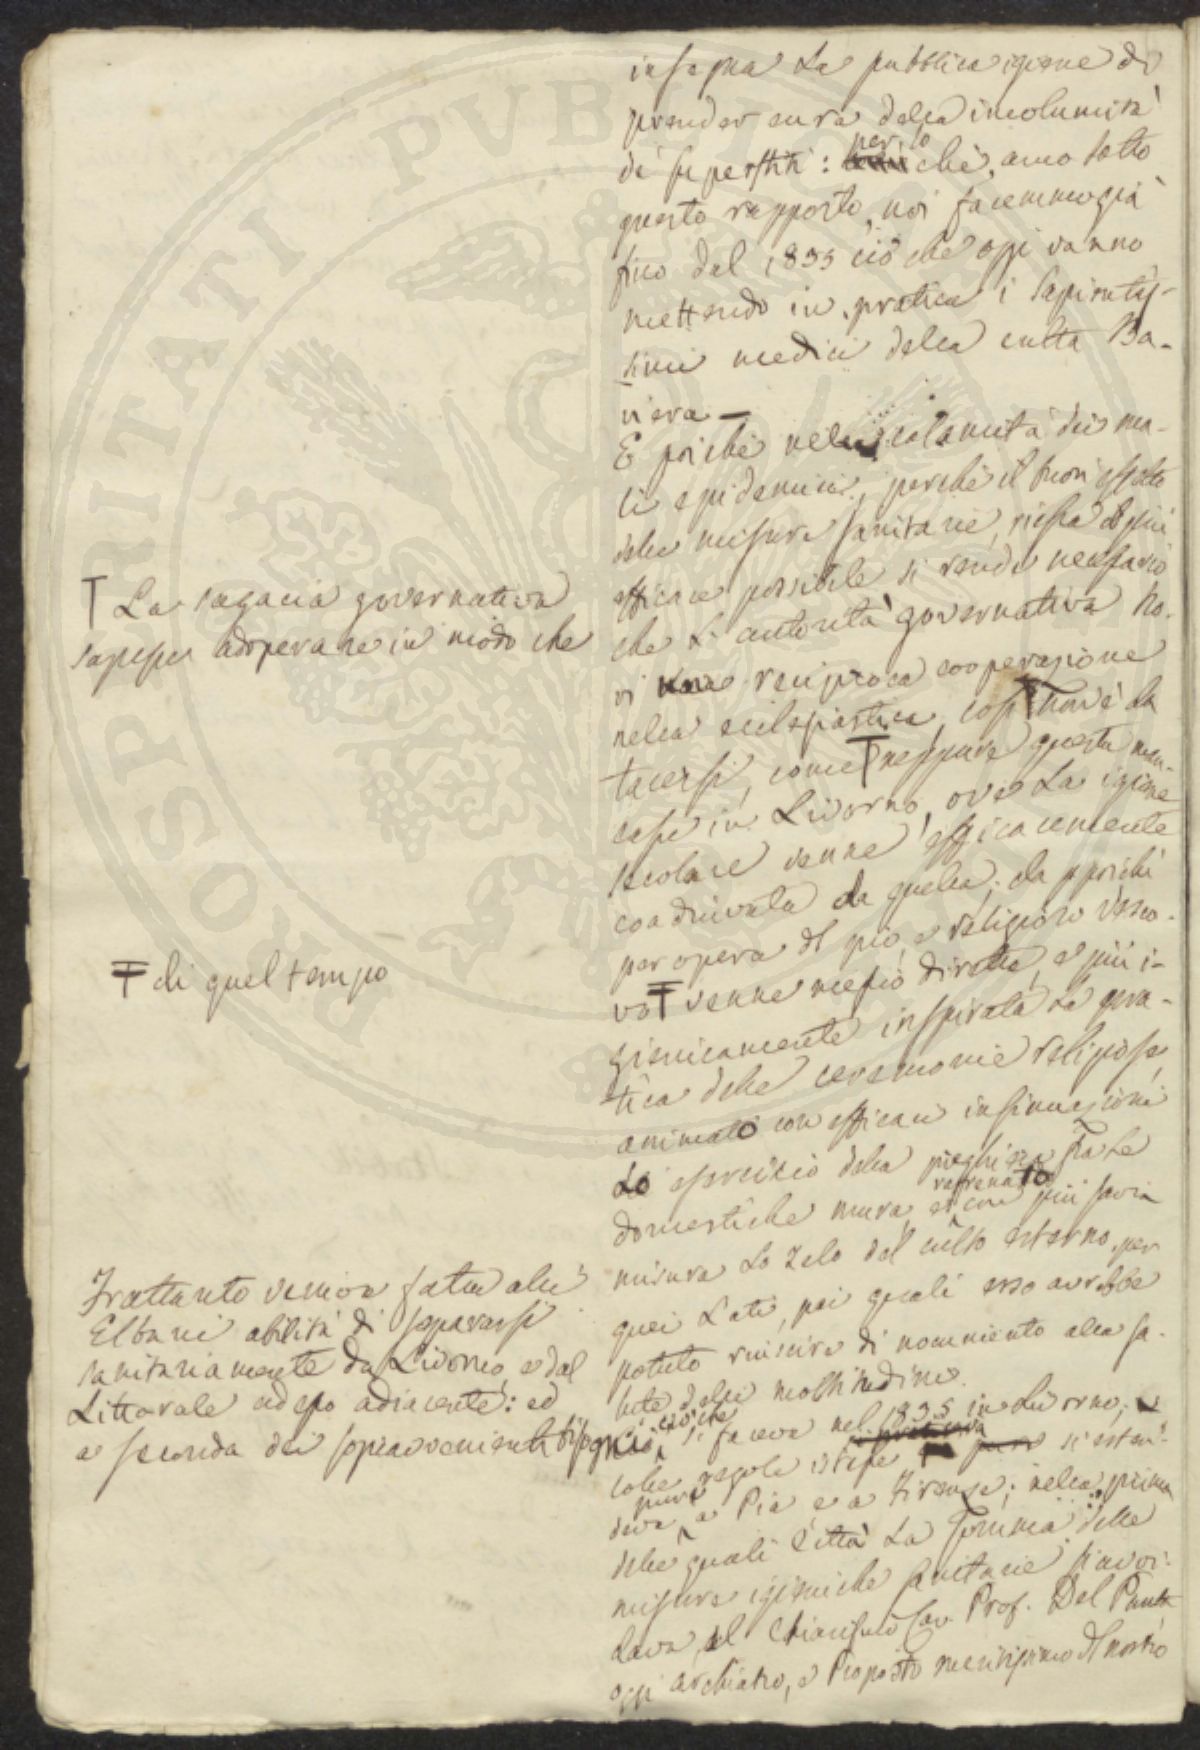 insegna la pubblica igiene di
prender cura della incolumità
de' superstiti: per lo chè, anco sotto
questo rapporto, noi facemmo già
fino dal 1835 ciò che oggi vanno
mettendo in pratica i sapientis-
simi medici della culta Ba-
viera —
E poichè nella calamità dei ma-
li epidemici, perchè il buon effetto
delle misure sanitarie, riesca il più
efficace possibile si rende necessario
che l'autorità governativa tro-
vi reciproca cooperazione
nella ecclesiastica, così non è da
tacersi, come neppure questa man-
casse in Livorno, ove la igiene
secolare venne efficacemente
coadiuvata da quella; da poichè
per opera del pio e religioso Vesco-
vo venne meglio diretta, e più i-
gienicamente inspirata la pra-
tica delle ceremonie religiose,
animato con efficaci insinuazioni
lo esercizio della preghiera fra le
domestiche mura, rafrenato con più savia
misura lo zelo del culto esterno, per
quei lati, pei quali esso avrebbe
potuto riuscire di nocumento alla sa-
lute della moltitudine.
ciò che si faceva nel 1835 in Livorno;
colle regole istesse si esten-
deva pure a Pisa e a Firenze; nella prima
delle quali Città la somma delle
misure igieniche sanitarie
il Chiarissimo Cav. Prof. Del Punta
oggi archiatro, e Proposto meritissimo del nostro
T La sagacia governativa
sapesse adoperare in modo che
T di quel tempo
Frattanto veniva fatta alli
Elbani abilità di separarsi
sanitariamente da Livorno, e dal
Littorale ad esso adiacente: ed
a seconda dei sopravvenienti bisogni